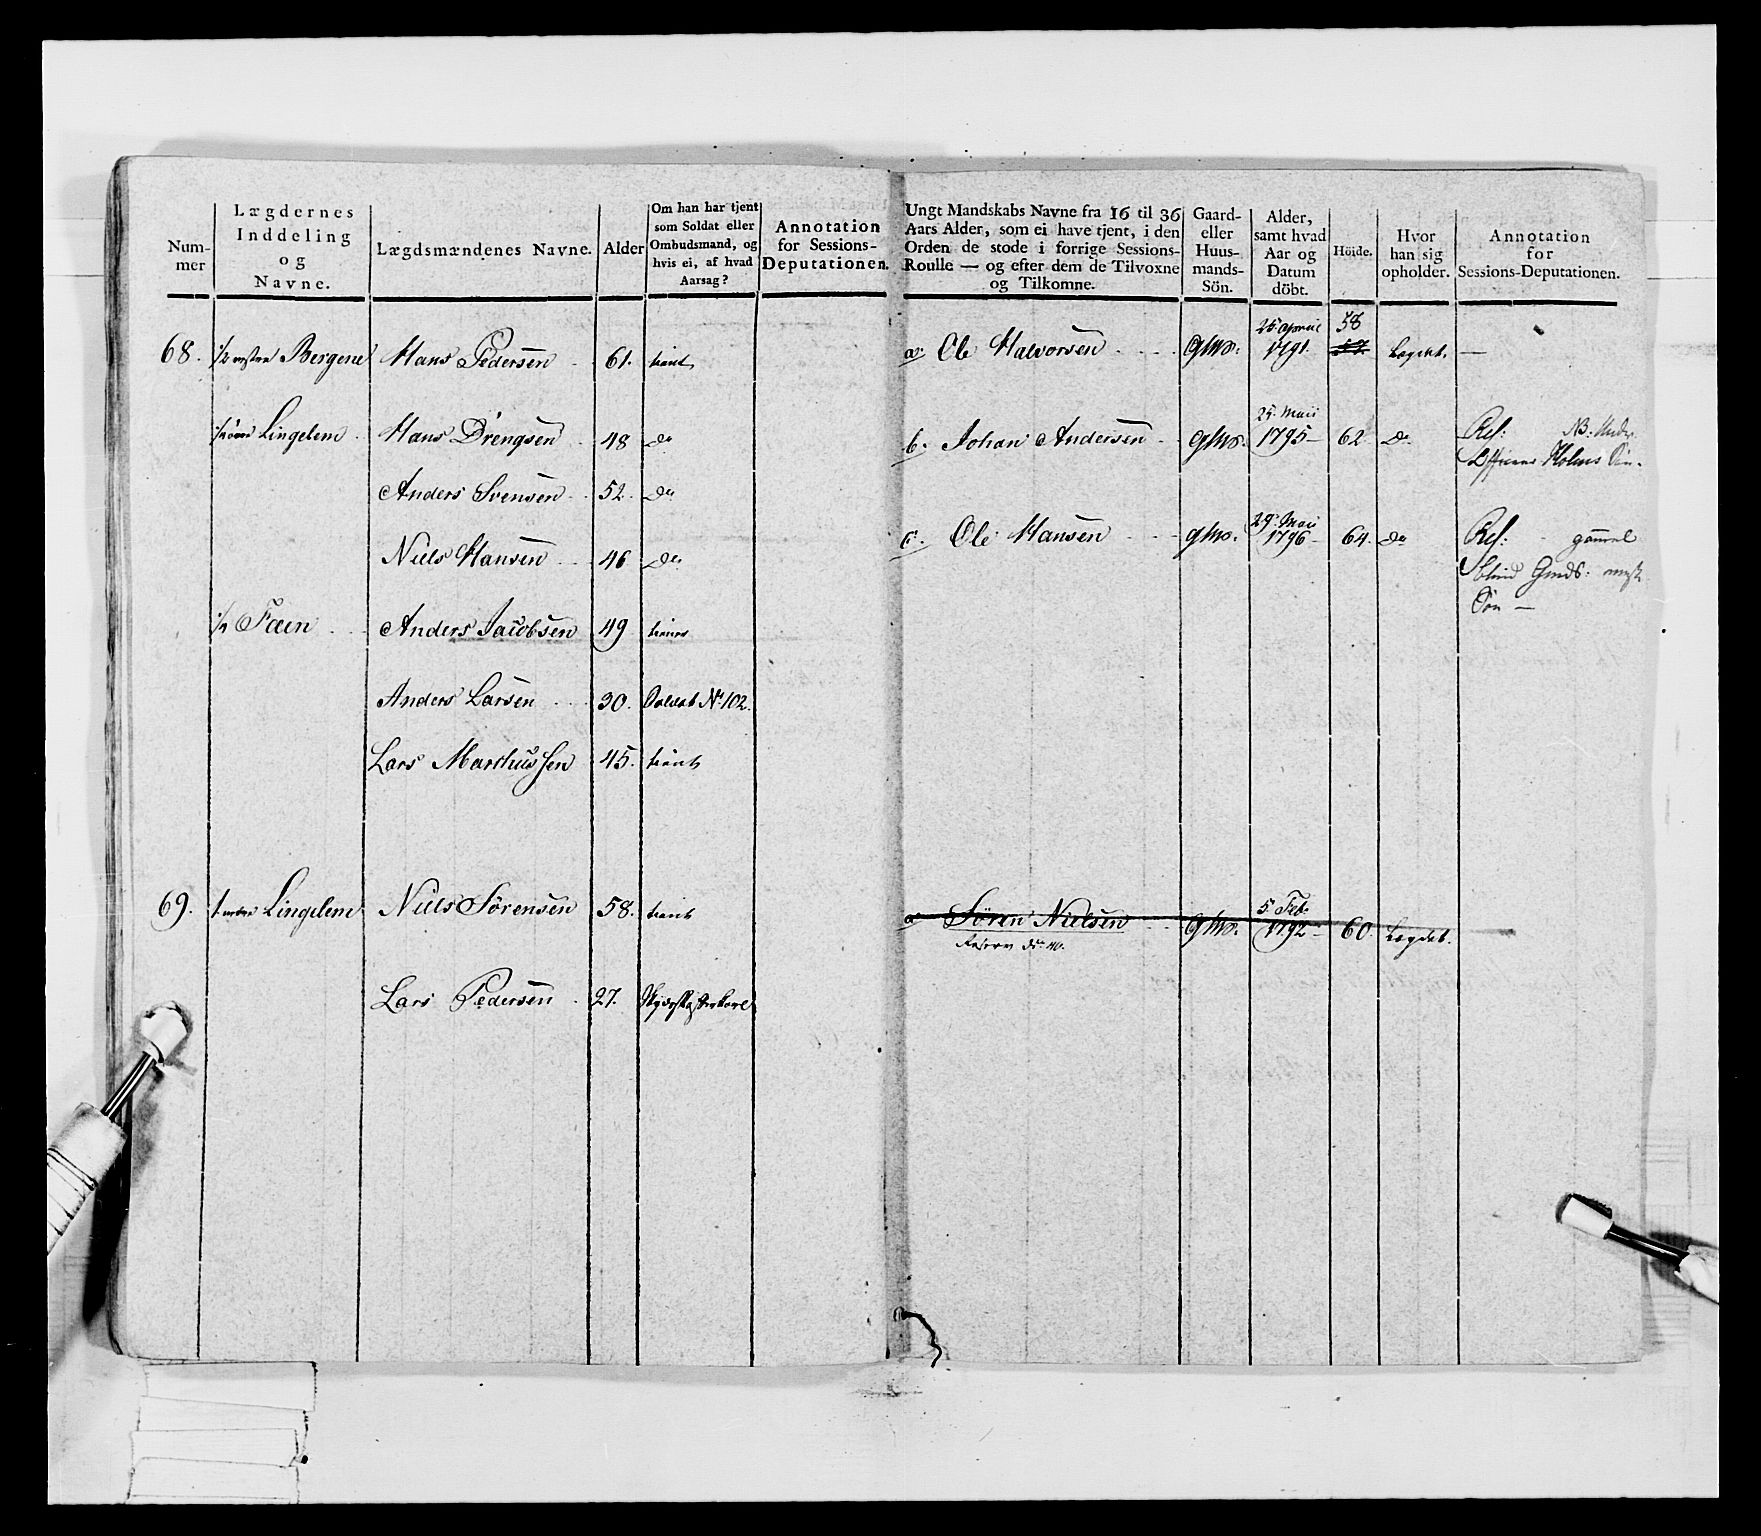 Num-
mer
Lægdernes
Inddeling
og
Navne.
Lægdsmændenes Navne.
Alder
Om han har tjent
som Soldat eller
Ombudsmand, og
hvis ei, af hvad
Aarsag?
Annotation
for Sessions-
Deputationen.
68. 1/2 vestre Bergene Hans Pedersen 61. tient
Lingelem Hans Drengsen 48 do
Anders Svensen 52. do
Niels Hansen 46 do
Faen Anders Jacobsen 49
Anders Larsen 30. Soldat No 102.
Lars Marthussen 45. tient
69. 1 Lingelem Niels Sörensen 58. tient
Lars Pedersen 27.
Ungt Mandskabs Navne fra 16 til 36
Aars Alder, som ei have tjent, i den
Orden de stode i forrige Sessions-
Roulle — og efter dem de Tilvoxne
og Tilkomne.
Gaard-
eller
Huus-
mands-
Sön.
Alder,
samt hvad
Aar og
Datum
döbt.
Höide.
Hvor
han sig
opholder.
Annotation
for
Sessions-Deputationen.
25 April 58
a. Ole Halvorsen gms: 1791. 57. Lægdet. —
25. Maii
b. Johan Andersen gms: 1795 62. do Ref: NB: Under
Officeer Holms Sön.
29. Maii
c. Ole Hansen gms: 1796 64. do Ref: gammel
blind Gmds:
Sön —
5 Feb.
a Sören Nielsen gms: 1792 60. Lægdet.